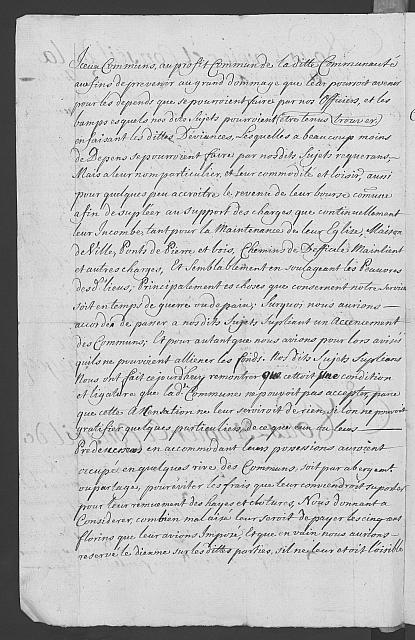 Iceux Communs, au profit Commun de la ditte Communauté
aux fins de prevenir au grand dommage que leur pourroit avenir
pour les depends que se pourroient faire par nos Officiers, et les
champs esquels nos dits Sujets pourroient être tenus trouver,
en faisant les dittes Deviances, Lesquelles a beaucoup moins
de Depens se pourroient faire par nos dits Sujets requerans,
Mais a leur nom particulier, et leur commodité et loisir, aussi
pour quelques peu accroitre le revenu de leur bourse comune
afin de supléer au support des charges que continuellement
leur Incombe, tant pour la Maintenance de leur Eglise, Maison
de Ville, Ponts de Pierre et bois, Chemins de Difficile Maintient
et autres charges, Et Semblablement en soulageant les Pauvres
des d. lieux; Principalement es choses que consernent notre Service
soit en temps de guere ou de paix; Surquoi nous aurions
accordéa de passer a nos dits Sujets Supliant un Accencement
des Communs; Et pour autant que nous avions pour lors avisés
quils ne pouvoient alliener les fonds. Nos dits Sujets Suplians
Nous ont fait cejourdhuy remontrer que cettoit une condition
et ligature que lad. Commune ne pouvoit pas accepter, parce
que cette Astensation ne leur serviroit de rien, si lon ne pouvoit
gratifier quelques particuliers, de ce que eux ou leurs
Predecesseurs en accommodant leurs possesions auroient
occupé en quelques rive des Communs, soit par abergeant
ou partage, pour eviter les frais que leur conviendroit suporter
pour leur remuement des hayes et clotures, Nous donnant a
Considerer, combien mal aisé leur serait de payer les cinq cens
florins que leur avions Imposé, Et que en vain nous aurions
reservé le dixme sur les dittes parties, s'il ne leur etoit loisible